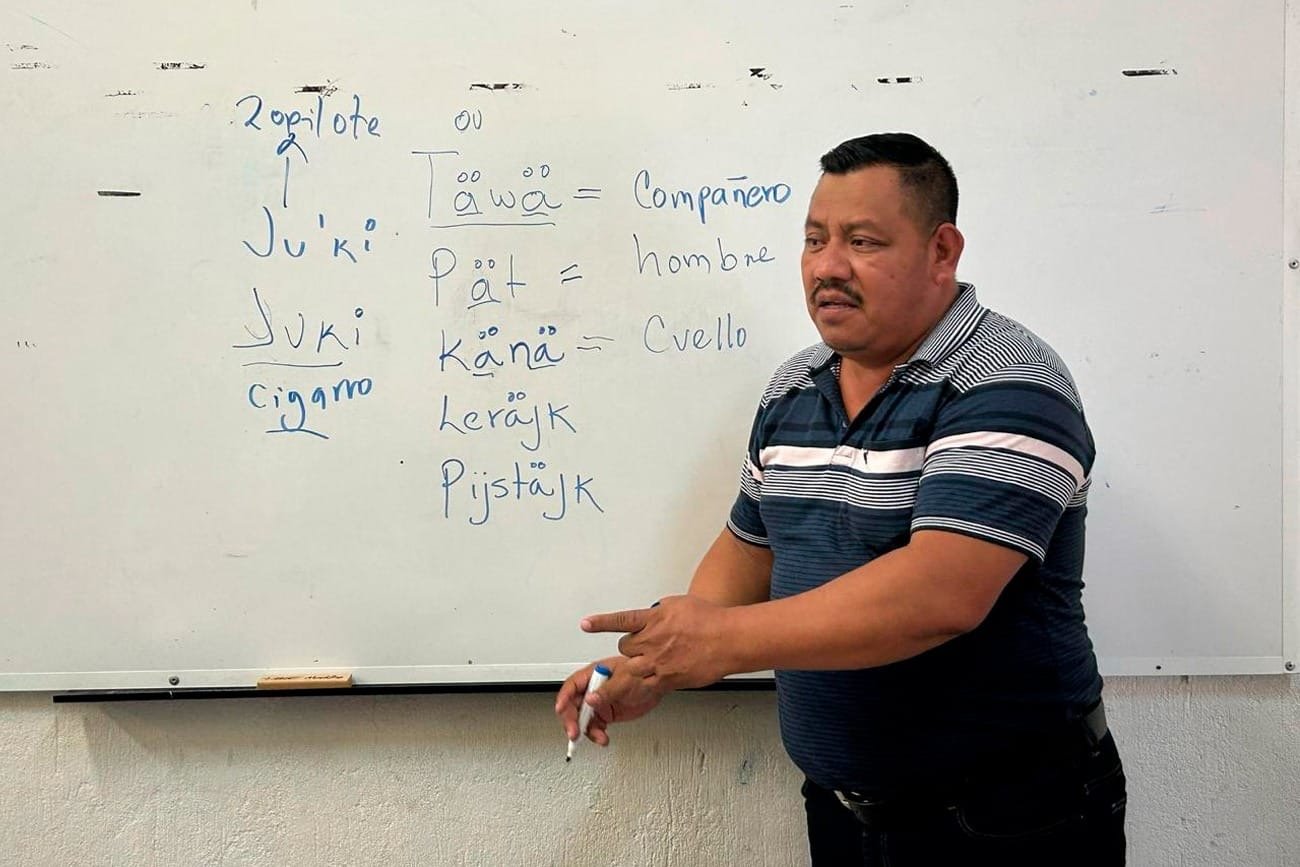 Zopilote
Ju'ki
Juki
cigarro
ou
Täwä = Compañero
Pät = hombre
Känä = Cuello
Leräjk
Pijstäjk